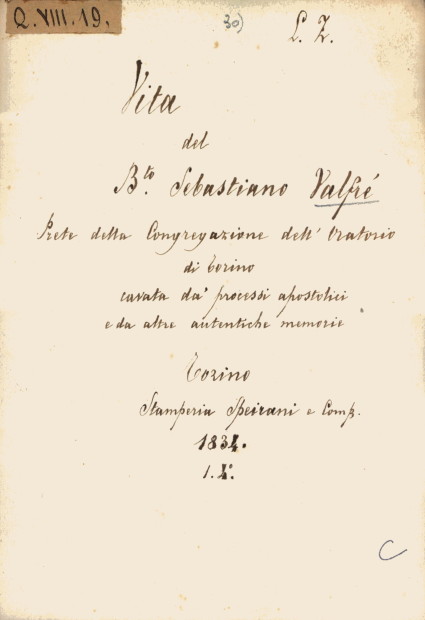 Q. VIII. 19.
30)
L. Z.
Vita
del
Bto. Sebastiano Valfré
Prete della Congregazione dell' Oratorio
di Torino
cavata da' processi apostolici
e da altre autentiche memorie
Torino
Stamperia Speirani e Comp.
1834.
1. 4°.
C